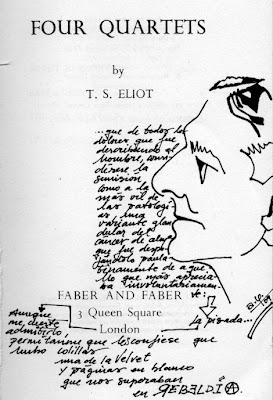 FOUR QUARTETS
by
T. S. ELIOT
...que de todos los
dolores que fue
describiendo al
hombre, consi
dérese la
sumisión
como a la
más vil de
las patologí
as, una
variante glan
dular del
cáncer de
que fue despo
jándolo paula
tinamente de aque
llo que más aprecia
ba involuntariamen
te:
FABER AND FABER
3 Queen Square
London
la pisada...
Aunque
me cueste
admitirlo,
permítanme que les confiese que
hubo colillas
una de la Velvet
y páginas en blanco
que nos superaban
en REBELDÍA